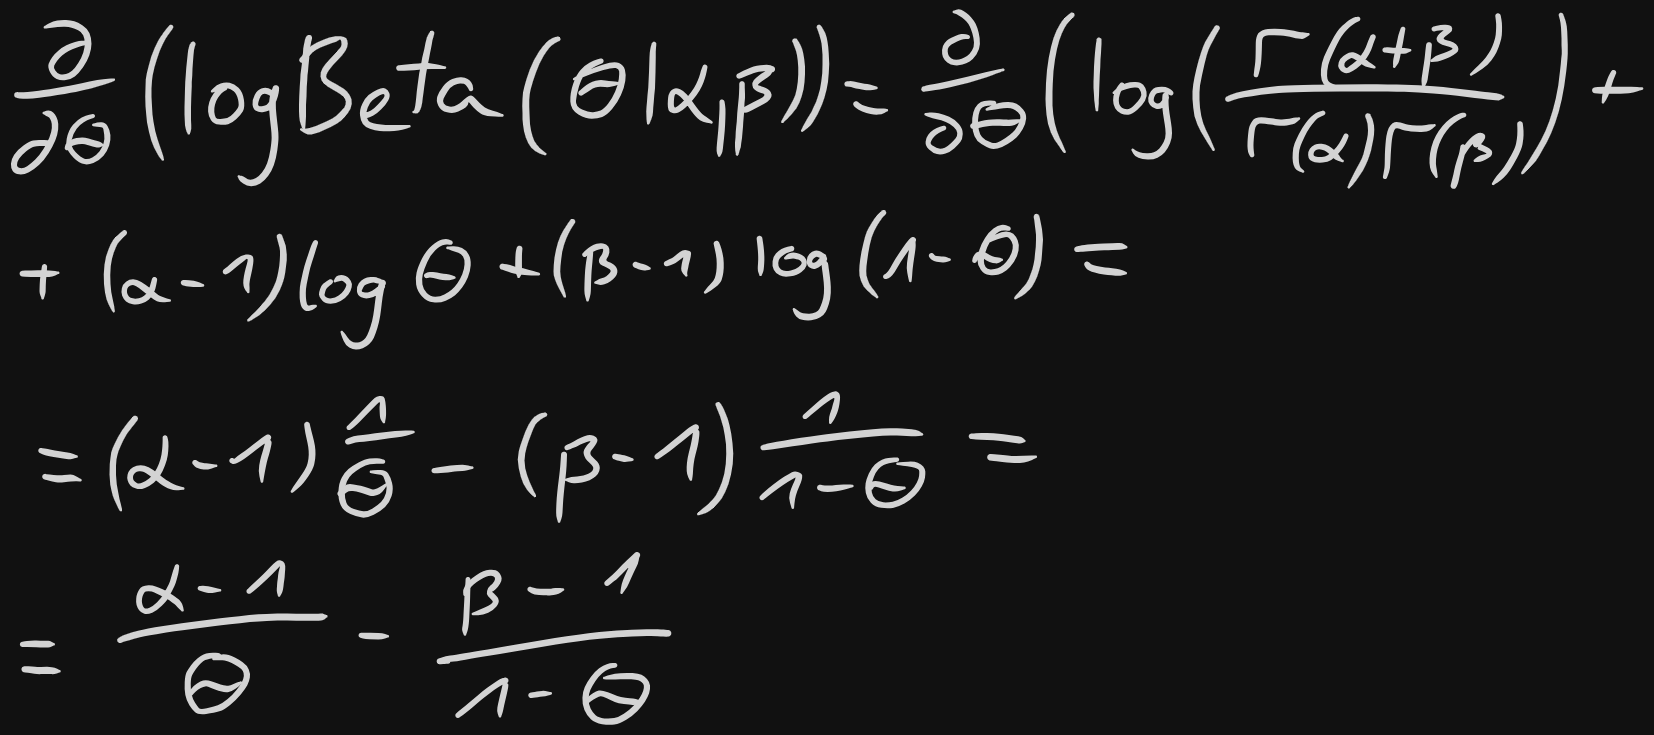 ∂/∂θ (log Beta(θ|α,β)) = ∂/∂θ (log(Γ(α+β)/Γ(α)Γ(β)) +
+ (α-1) log θ + (β-1) log (1-θ) =
= (α-1) 1/θ - (β-1) 1/1-θ =
= α-1/θ - β-1/1-θ